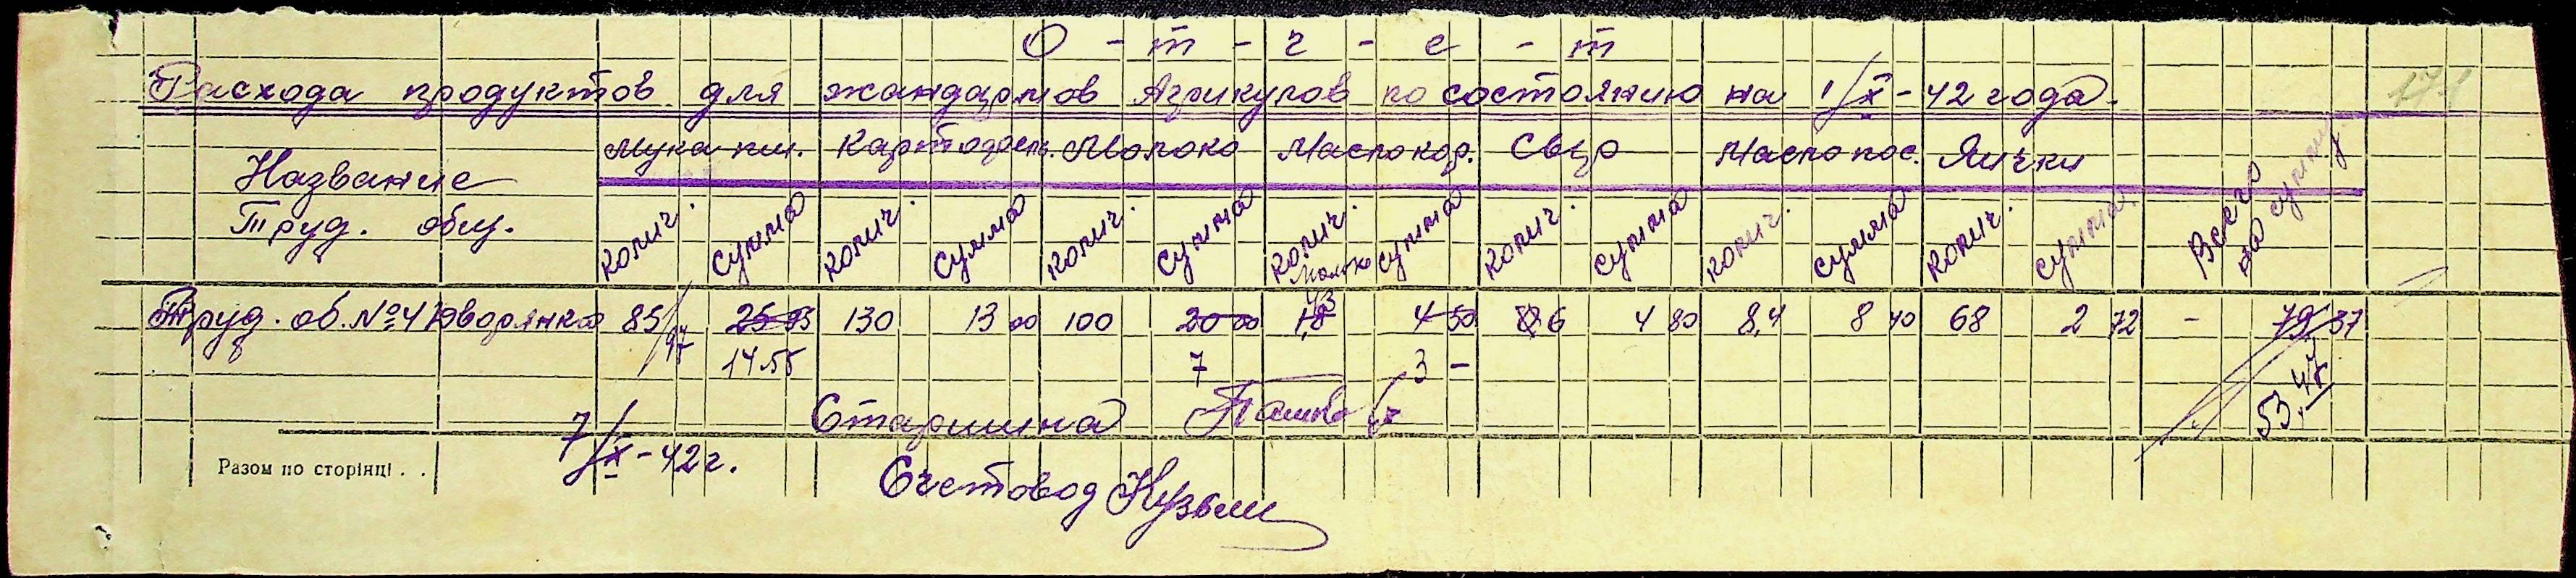 О - т - ч - е - т
Расхода продуктов для жандармов Агрикулов по состоянию на 1/X - 42 года.
174
Название Труд. общ. Мука пш. Картофель. Молоко Масло кор. Сыр Масло пос. Яички Всего на сумму
колич. сумма колич. сумма колич. сумма колич. сумма колич. сумма колич. сумма колич. сумма
Молоко
Труд. об. № 4 85/97 25 93 130 13 00 100 20 00 1,8 4 50 6 4 80 8,4 8 40 68 2 72 - 79 37
14.55 7 3 - 53,47
Старшина
7/X - 42 г.
Разом по сторінці . .
Счетовод Кузьм